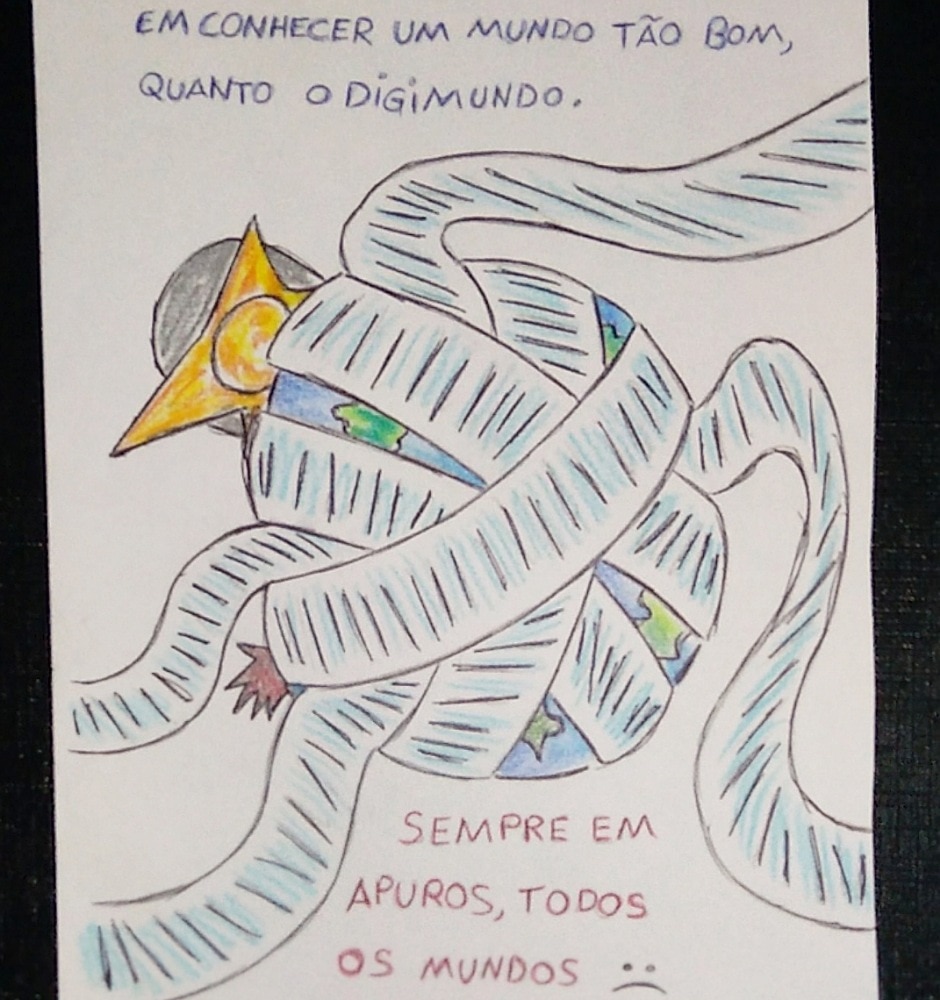 EM CONHECER UM MUNDO TÃO BOM,
QUANTO O DIGIMUNDO.
SEMPRE EM
APUROS, TODOS
OS MUNDOS :(